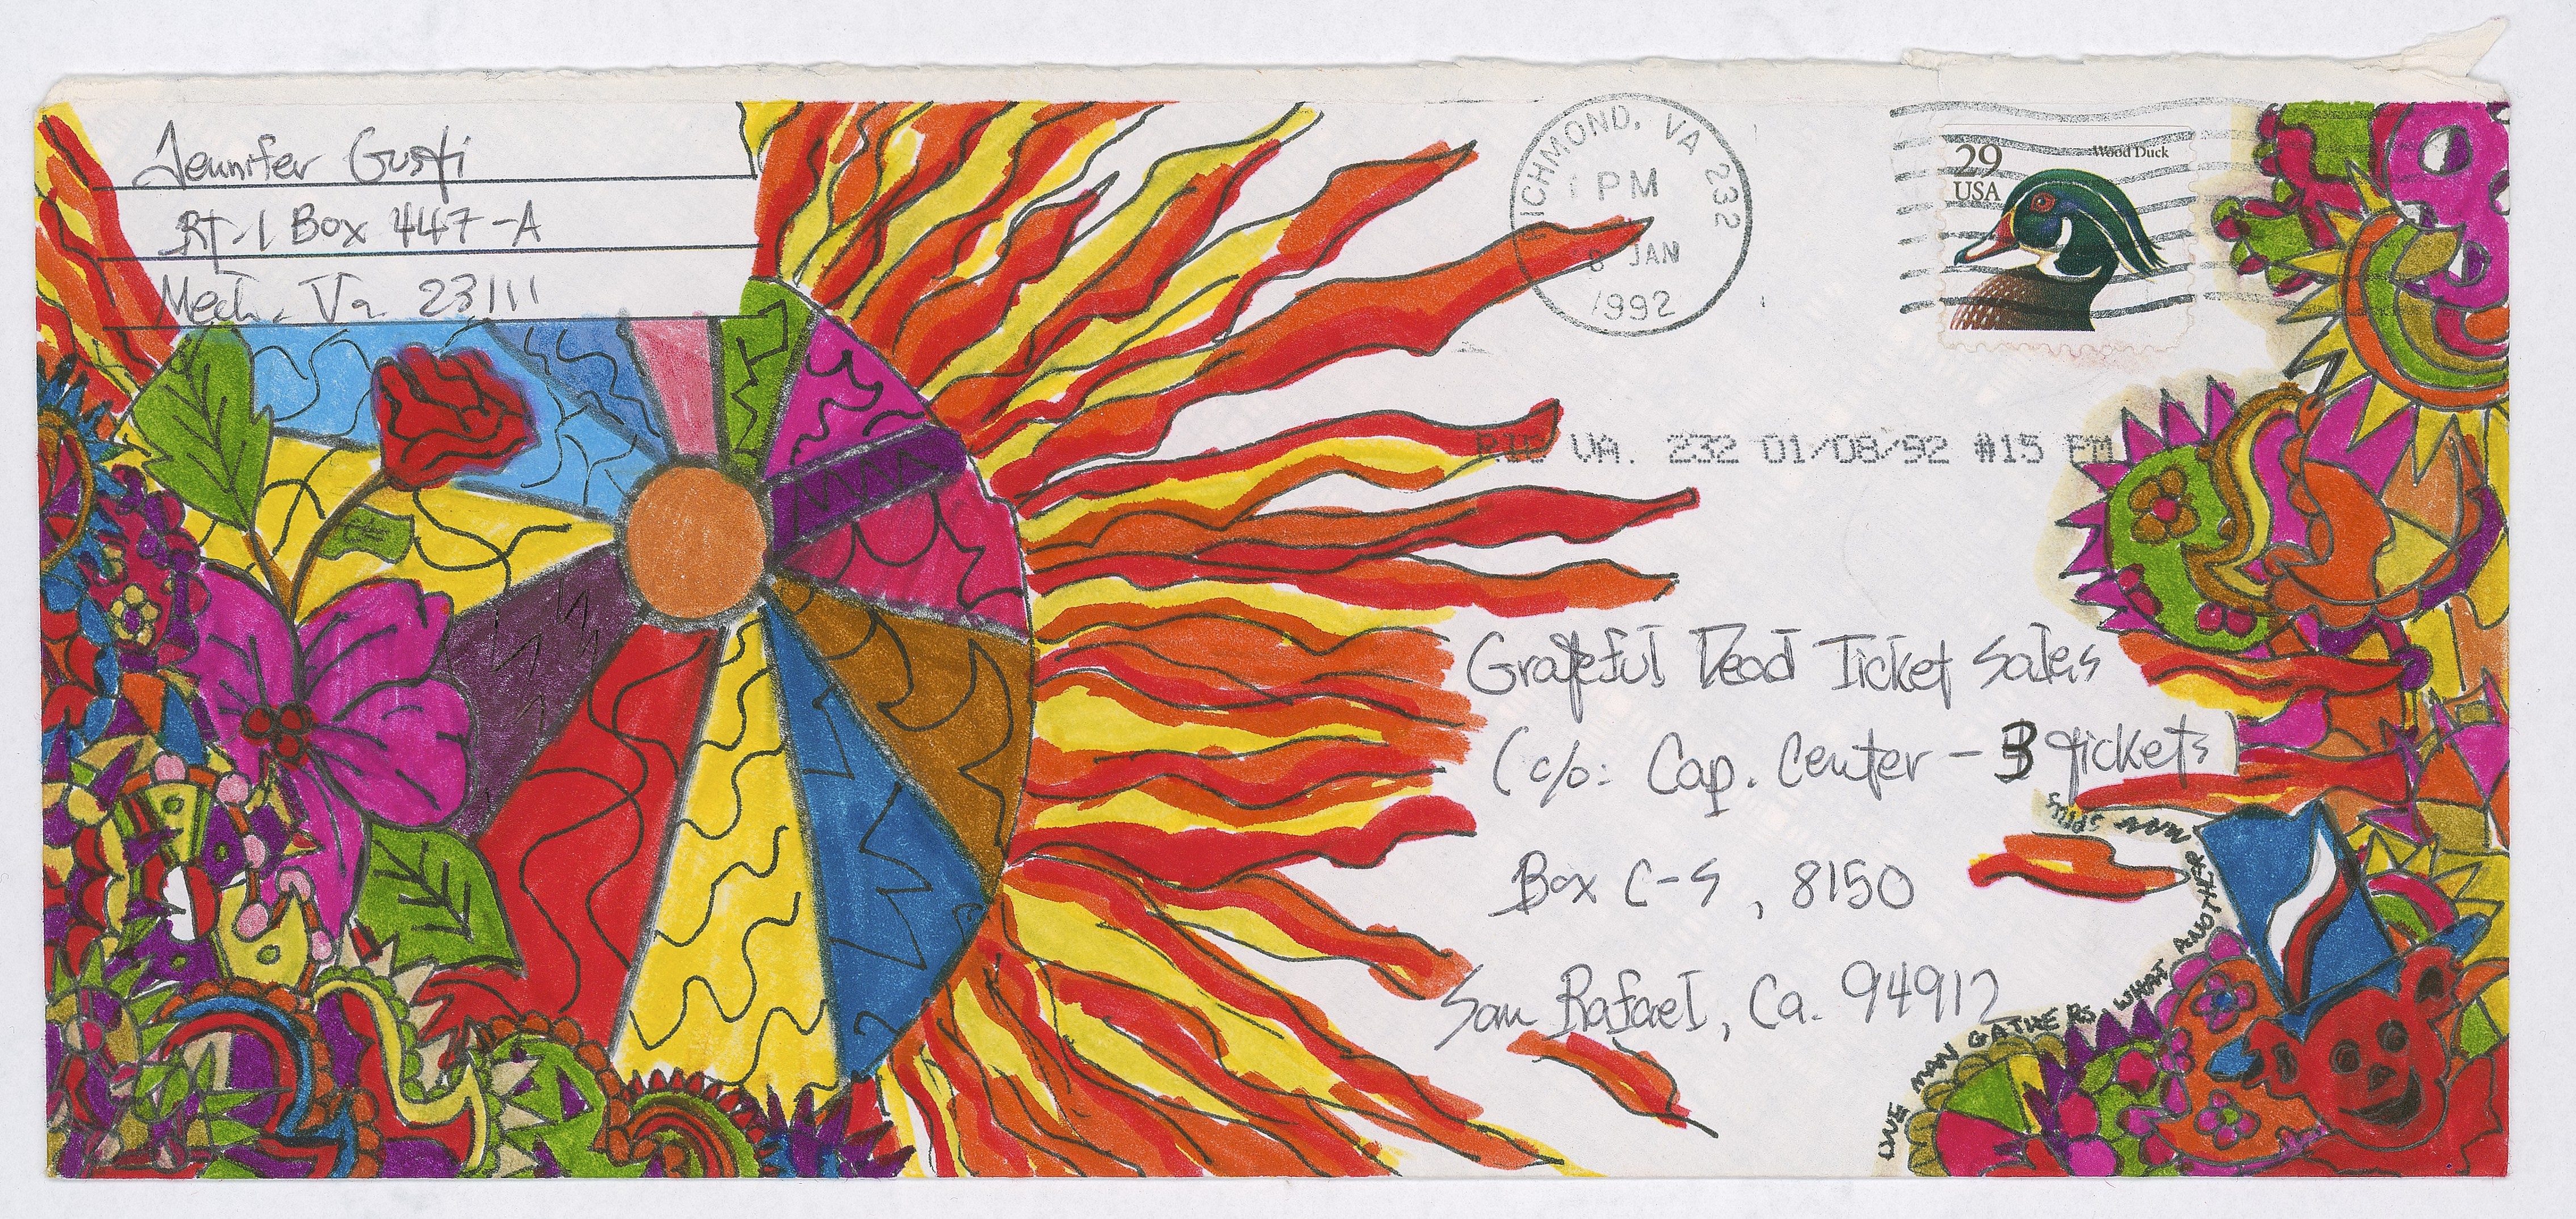 Jennifer Gusti
RT-1 Box 447-A
Mech. Va. 23111
RICHMOND, VA 232
PM
8 JAN
1992
29
USA
Wood Duck
VA. 232 01/08/92 #15 PM
Grateful Dead Ticket Sales
(c/o: Cap. Center - 3 tickets)
Box C-S, 8150
San Rafael, Ca. 94912
ONE MAN GATHERS WHAT ANOTHER MAN SPILLS